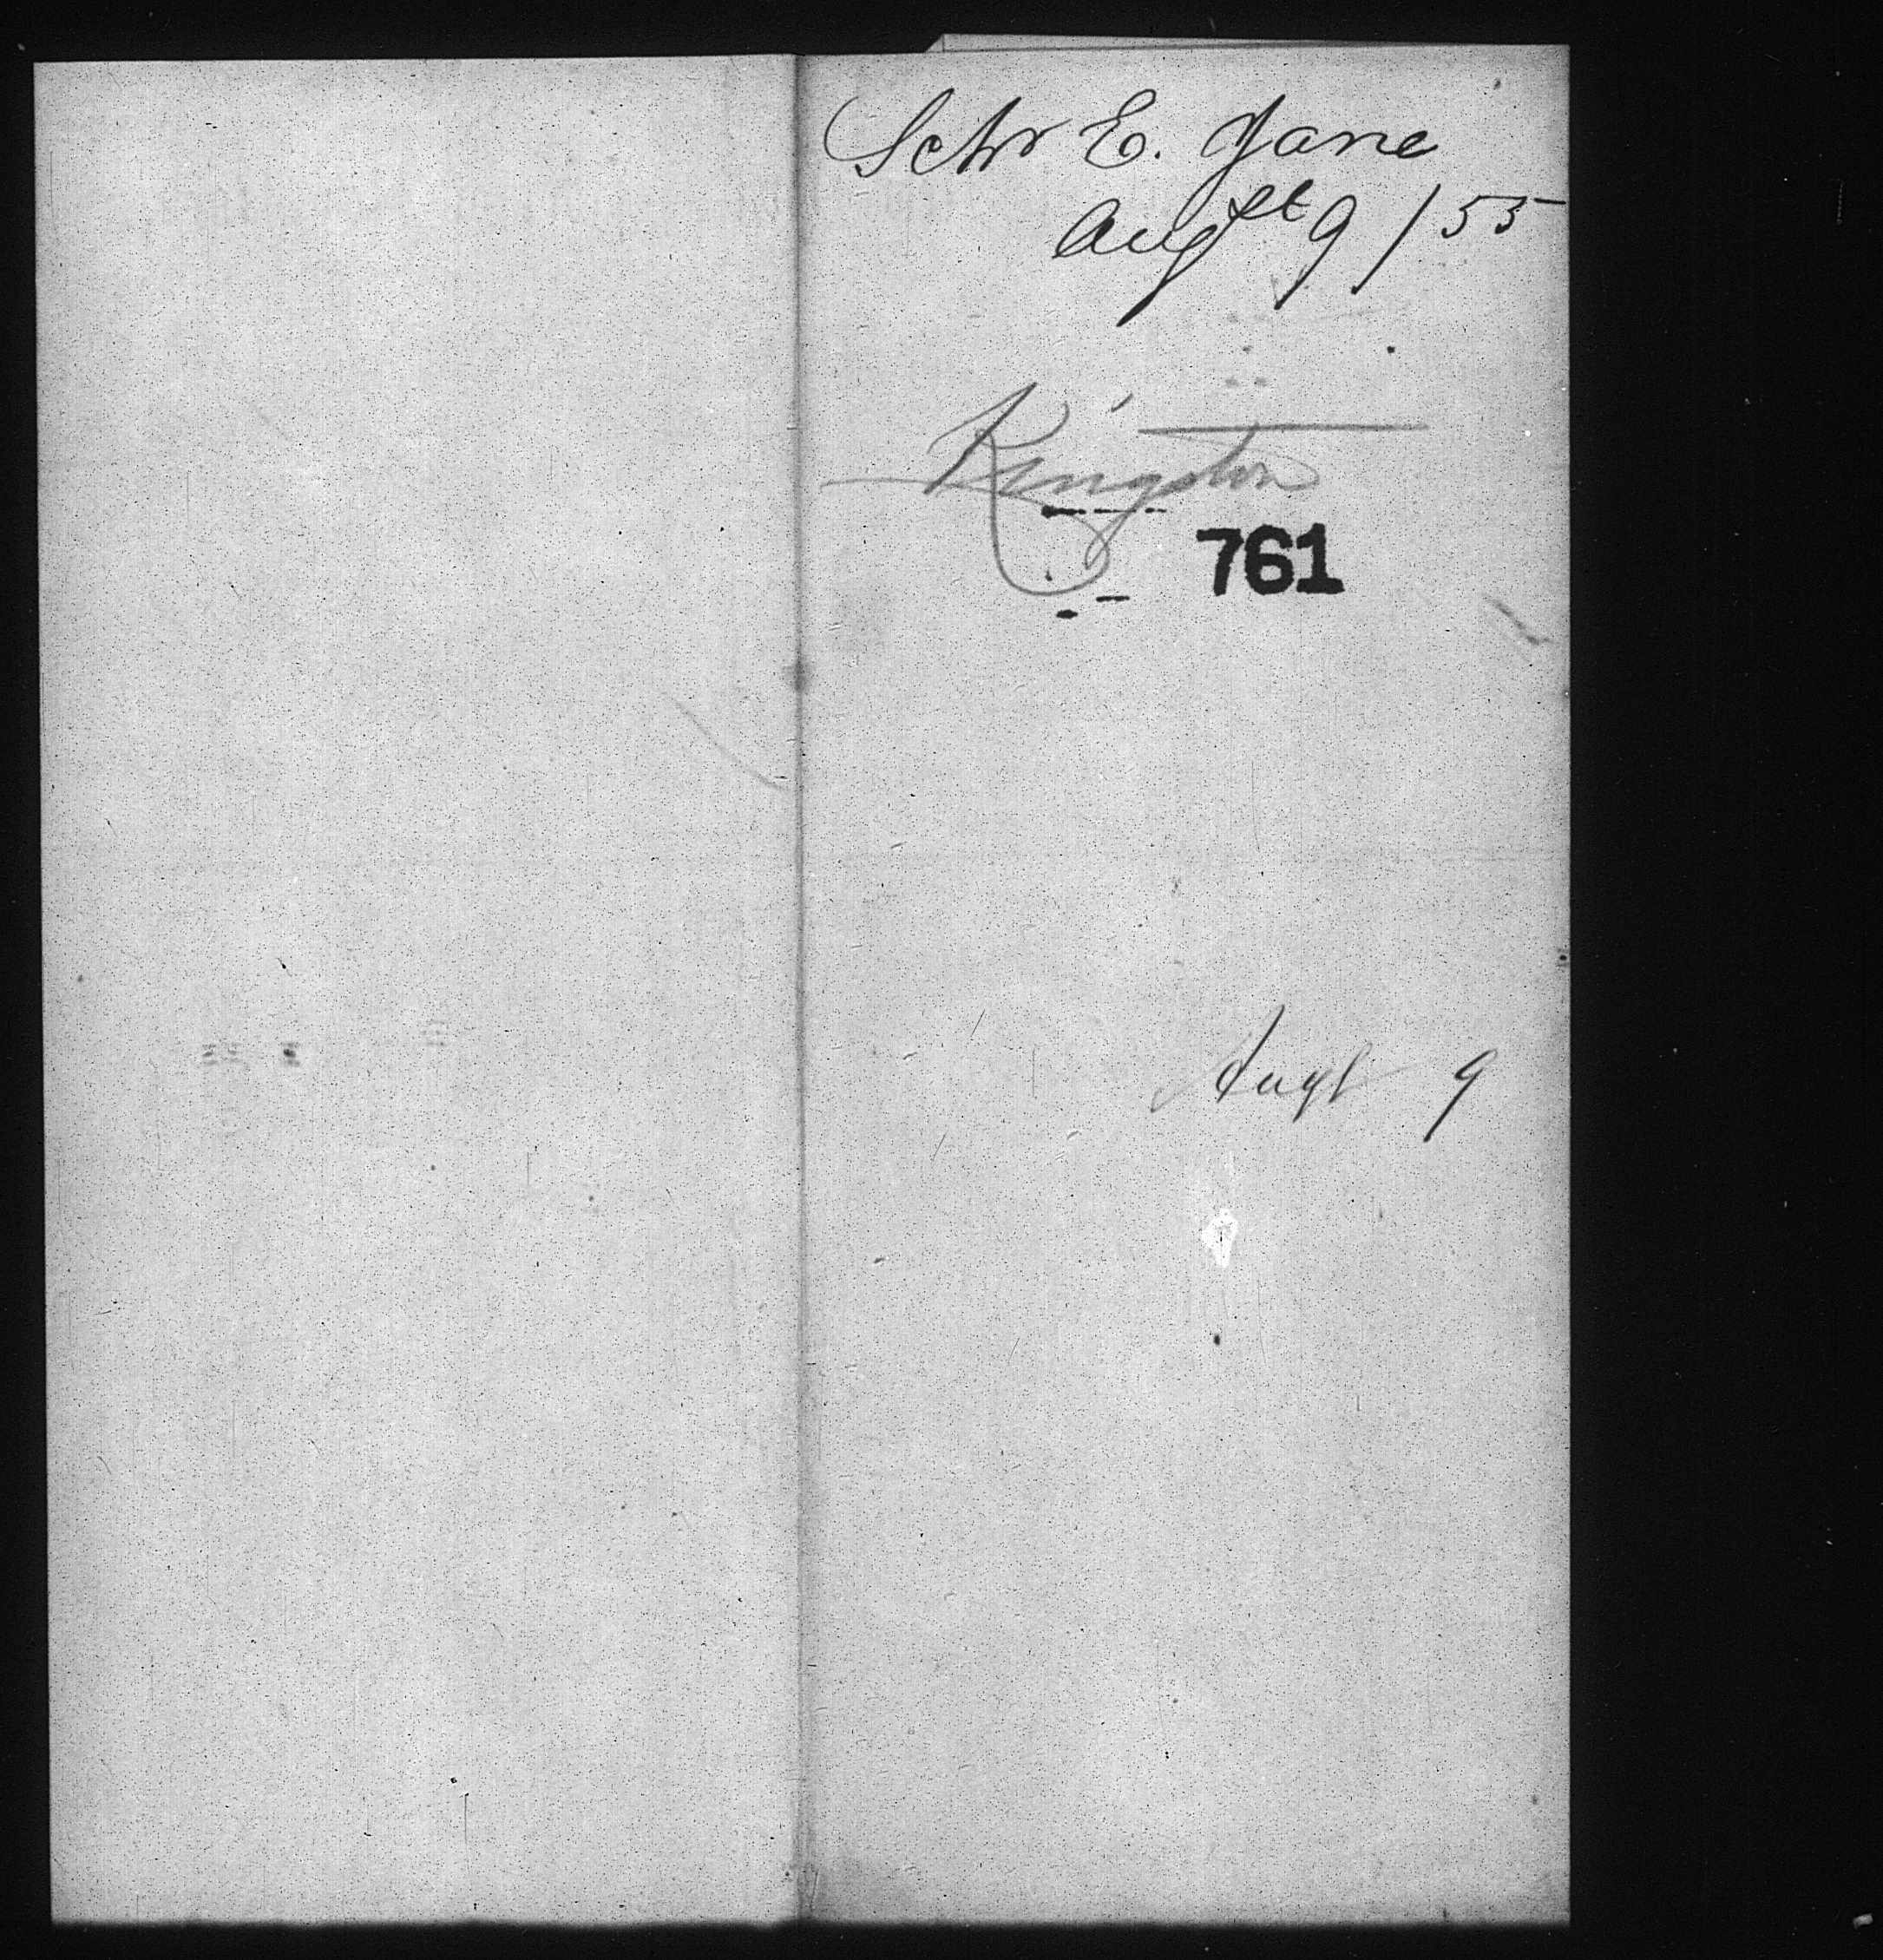 Schr E. Jane
Augst 9 / 55
Kingston
761
Augt 9